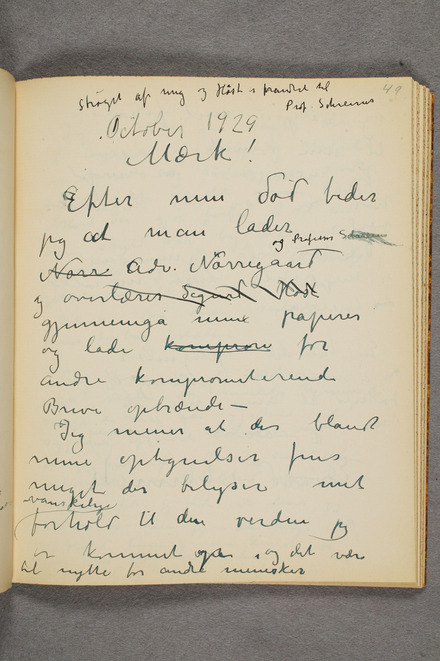 49
strøget af mig og Høst i forandret til
Prof. Schreiner
October 1929
Mærk!
Efter min død beder
jeg at man lader
og Professor Schreiner
Nørr Adv. Nørregaard
og overlærer Sigurd Høst
gjennemgå mine papirer
og lade kompron for
andre kompromiterende
Breve opbrænde —
Jeg mener at der blandt
mine optegnelser fins
meget der belyser mit
vanskelige
forhold til den verden jeg
er kommet op i og det være
til nytte for andre mennesker